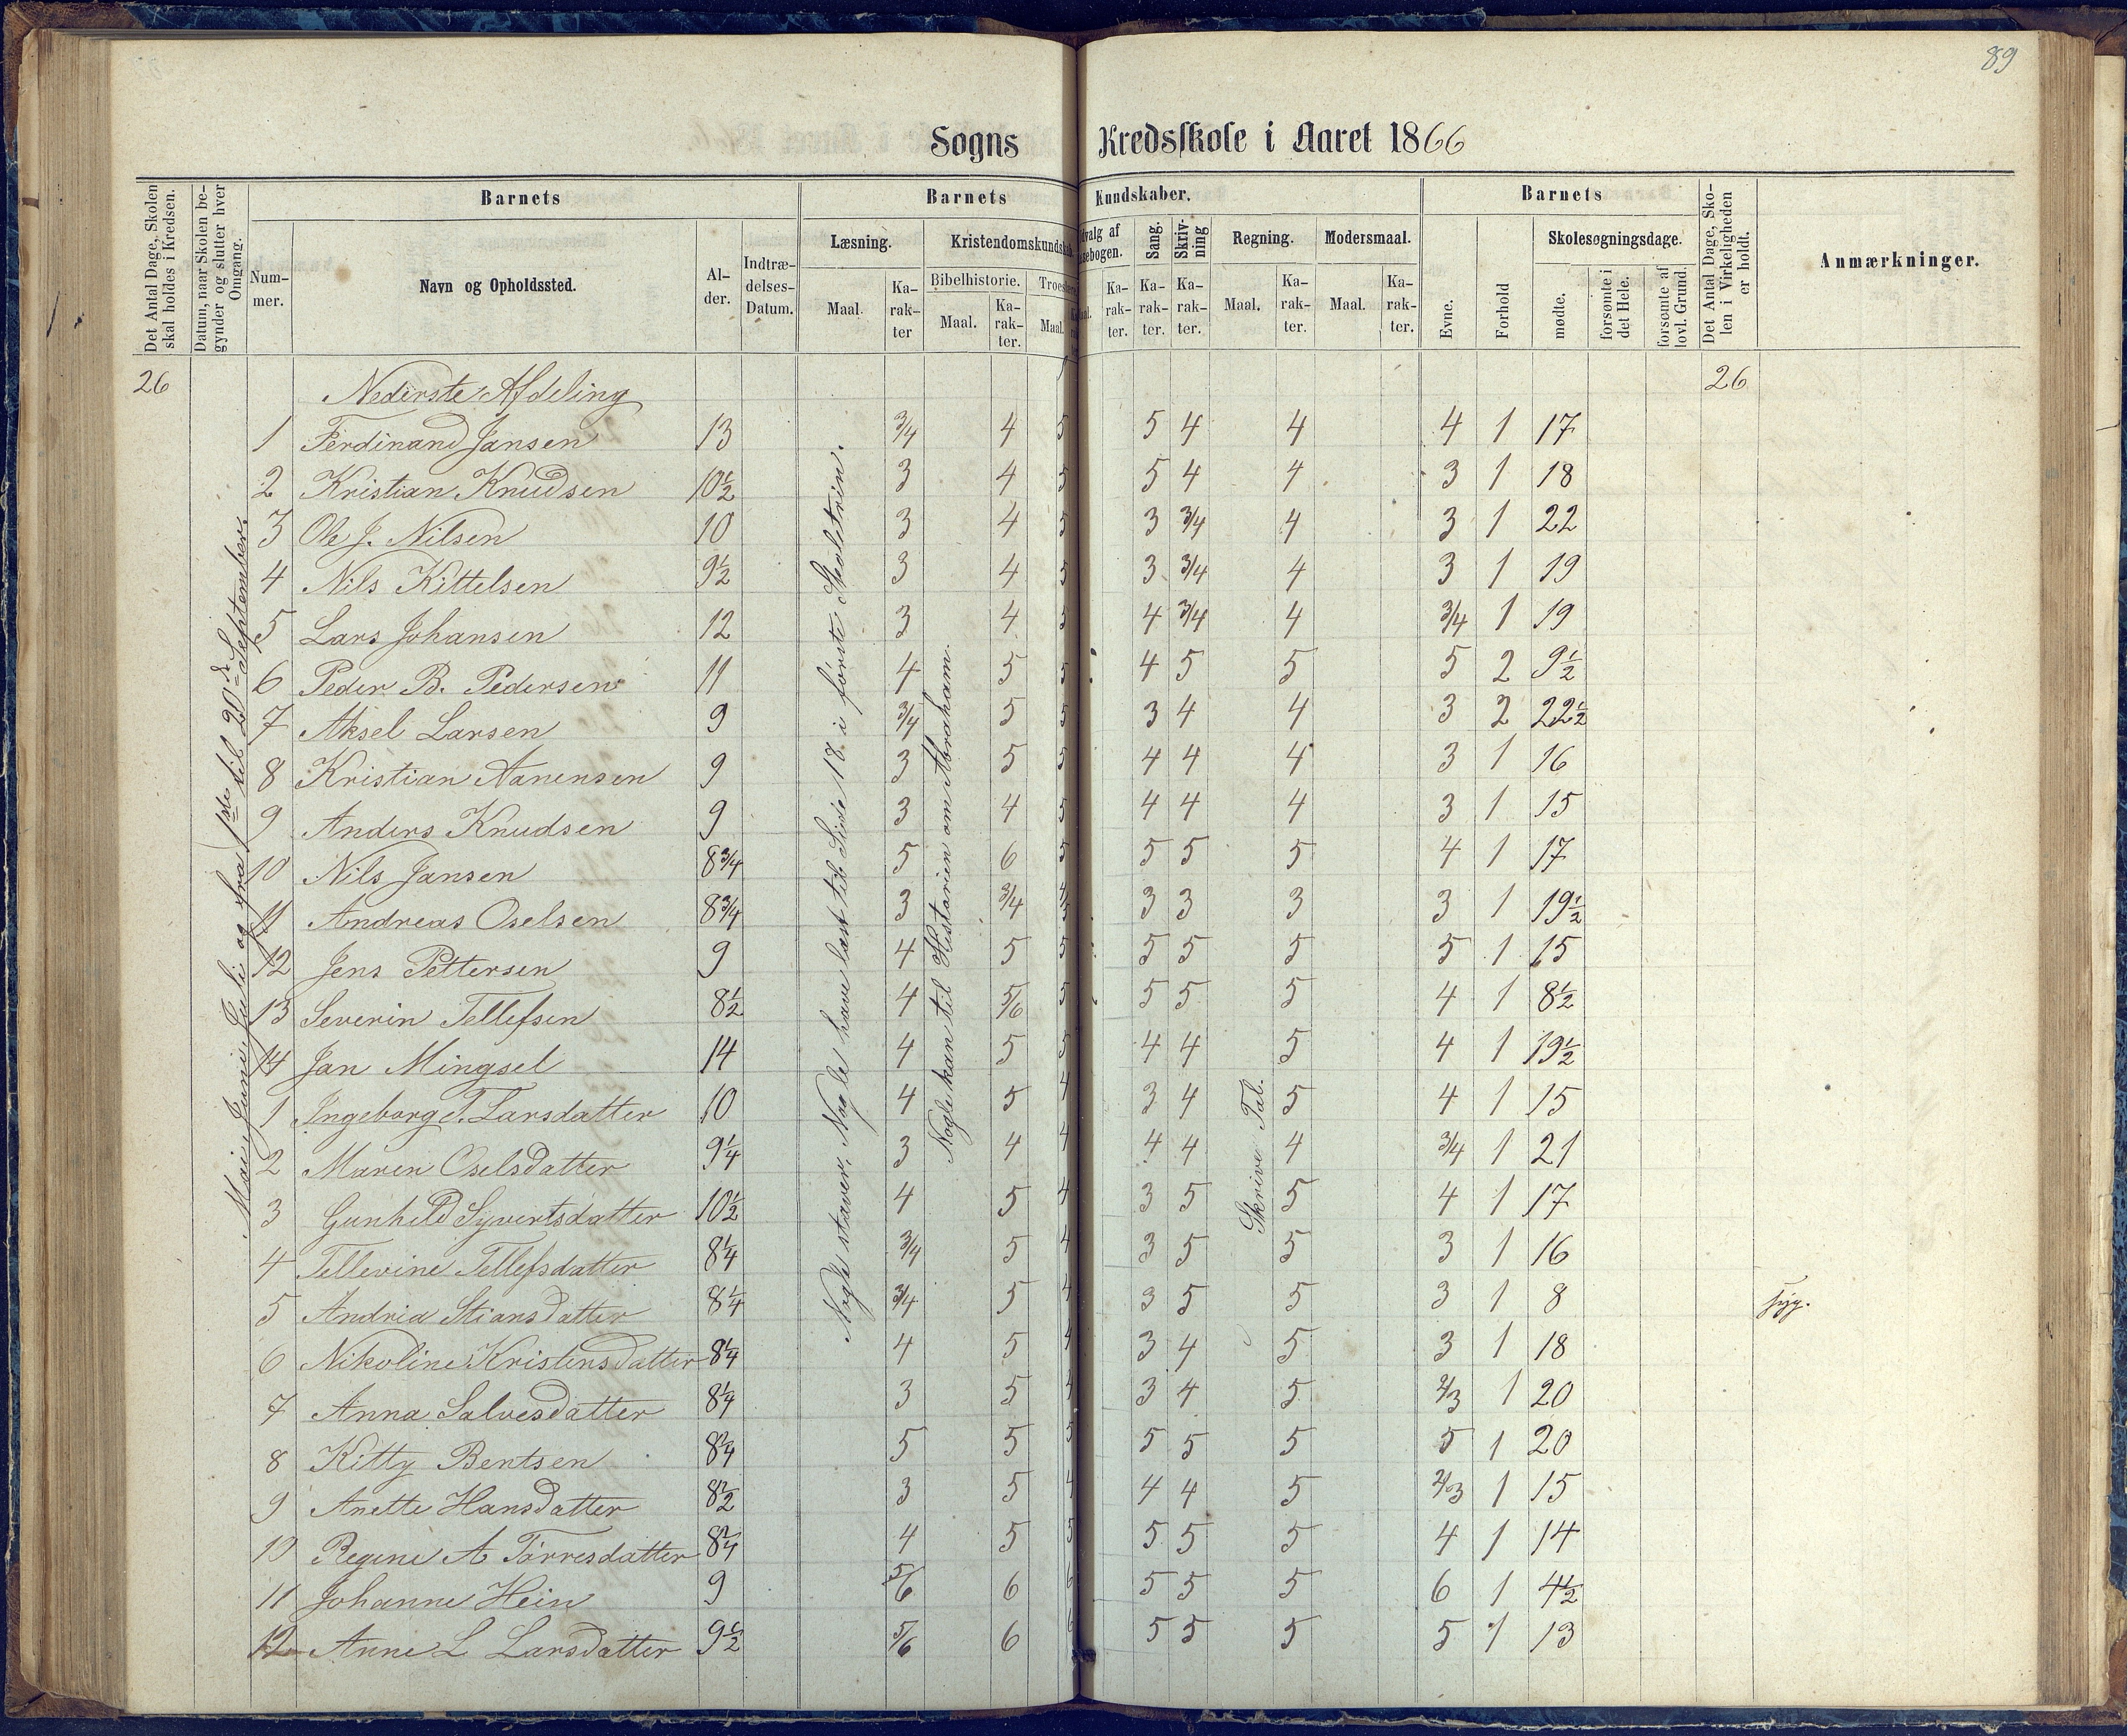 89
Sogns Kredsskole i Aaret 1866
Det Antal Dage, Skolen skal holdes i Kredsen.
Datum, naar Skolen begynder og slutter hver Omgang.
Barnets
Nummer.
Navn og Opholdssted.
Alder.
Indtrædelses-Datum.
Barnets Kundskaber.
Læsning.
Maal.
Karakter
Kristendomskundskab.
Bibelhistorie.
Maal.
Karakter.
Troes
Maal.
Udvalg af Læsebogen.
Karakter.
Sang.
Karakter.
Skrivning
Karakter.
Regning.
Maal.
Karakter.
Modersmaal.
Maal.
Karakter.
Barnets
Evne.
Forhold
Skolesøgningsdage.
mødte.
forsømte i det Hele.
forsømte af lovl. Grund.
Det Antal Dage, Skolen i Virkeligheden er holdt.
Anmærkninger.
26 Nederste Afdeling 26
1 Ferdinand Jansen 13 3/4 4 5 5 4 4 4 1 17
2 Kristian Knudsen 10½ 3 4 5 5 4 4 3 1 18
3 Ole J. Nilsen 10 3 4 5 3 3/4 4 3 1 22
4 Nils Kittelsen 9½ 3 4 5 3 3/4 4 3 1 19
5 Lars Johansen 12 3 4 5 4 3/4 4 3/4 1 19
6 Peder B. Pedersen 11 4 5 5 4 5 5 5 2 9½
7 Aksel Larsen 9 3/4 5 5 3 4 4 3 2 22½
8 Kristian Aanensen 9 3 5 5 4 4 4 3 1 16
9 Anders Knudsen 9 3 4 5 4 4 4 3 1 15
10 Nils Jansen 8¾ 5 6 5 5 5 5 4 1 17
11 Andreas Oselsen 8¾ 3 3/4 4/5 3 3 3 3 1 19½
12 Jens Pettersen 9 4 5 5 5 5 5 5 1 15
13 Severin Tellefsen 8½ 4 5/6 5 5 5 5 4 1 8½
14 Jan Mingsel 14 4 5 5 4 4 5 4 1 19½
1 Ingeborg T. Larsdatter 10 4 5 4 3 4 5 4 1 15
2 Maren Oselsdatter 9¼ 3 4 4 4 4 4 3/4 1 21
3 Gunhild Syvertsdatter 10½ 4 5 4 3 5 5 4 1 17
4 Tellevine Tellefsdatter 8¼ 3/4 5 4 3 5 5 3 1 16
5 Andrea Stiansdatter 8¼ 3/4 5 4 3 5 5 3 1 8 syg.
6 Nikoline Kristensdatter 8¼ 4 5 4 3 4 5 3 1 18
7 Anna Salvesdatter 8¼ 3 5 4 3 4 5 2/3 1 20
8 Kitty Bentsen 8¼ 5 5 5 5 5 5 5 1 20
9 Anette Hansdatter 8½ 3 5 4 4 4 5 2/3 1 15
10 Regine A Tørresdatter 8¼ 4 5 5 5 5 5 4 1 14
11 Johanne Hein 9 5/6 6 6 5 5 5 6 1 4½
12 Anne L Larsdatter 9½ 5/6 6 6 5 5 5 5 1 13
Mai, Juni, Juli og fra 1ste til 20de September.
Nogle staver, Nogle have læst til Side 18 i første Skoletrin.
Nogle kan til Historien om Abraham.
Skrive Tal.